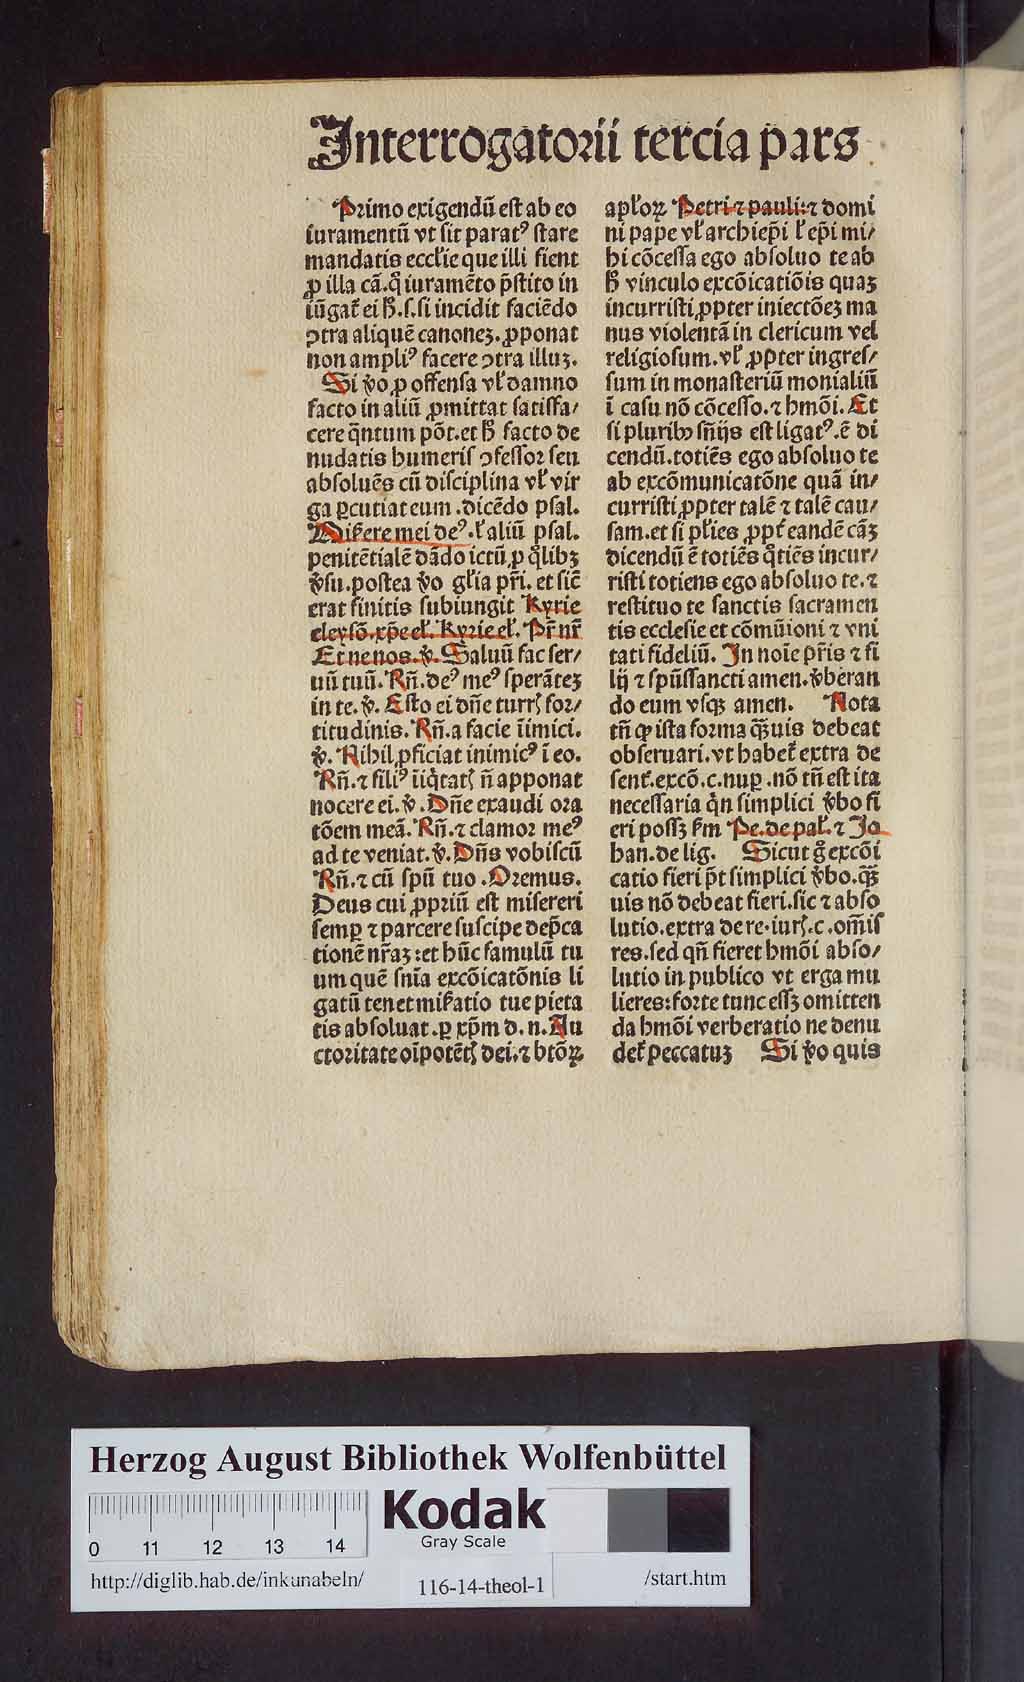 Interrogatorii tercia pars
Primo exigendū est ab eo
iuramentū vt sit paratꝰ stare
mandatis eccl'ie que illi fient
ꝓ illa cā. qͥ iuramēto p̄stito in
iūgat' ei h̄. s. si incidit faciēdo
ↄtra aliquē canoneꝫ. ꝓponat
non ampliꝰ facere ↄtra illuꝫ.
Si v̄o ꝓ offensa vl' damno
facto in aliū ꝓmittat satisfa/
cere q̄ntum pōt. et h̄ facto de
nudatis humeris ↄfessor seu
absoluēs cū disciplina vl' vir
ga ꝑcutiat eum. dicēdo psal.
Mis'ere mei deꝰ. l' aliū psal.
penitētialē dādo ictū ꝓ qͦlibꝫ
v̄su. postea v̄o gl'ia pr̄i. et sic̄
erat finitis subiungit Kyrie
eleysō. xp̄e el'. Kyrie el'. Pr̄ nr̄
Et ne nos. v̄. Saluū fac ser/
uū tuū. Rñ. deꝰ meꝰ sperāteꝫ
in te. v̄. Esto ei dn̄e turrꝭ for/
titudinis. Rñ. a facie īimici.
v̄. Nihil ꝓficiat inimicꝰ ī eo.
Rñ. ⁊ filiꝰ īiqͥtatꝭ n̄ apponat
nocere ei. v̄. Dn̄e exaudi ora
tōem meā. Rñ. ⁊ clamor meꝰ
ad te veniat. v̄. Dn̄s vobiscū
Rñ. ⁊ cū spū tuo. Oremus.
Deus cui ꝓpriū est misereri
semꝑ ⁊ parcere suscipe dep̄ca
tionē nr̄aꝫ: et hūc famulū tu
um quē snīa excōicatōnis li
gatū tenet mis'atio tue pieta
tis absoluat. ꝑ xp̄m d. n. Au
ctoritate oīpotētꝭ dei. ⁊ btōꝝ
apl'oꝝ Petri ⁊ pauli: ⁊ domi
ni pape vl' archiep̄i l' ep̄i mi/
hi cōcessa ego absoluo te ab
h̄ vinculo excōicatiōis quaꝫ
incurristi ꝓpter iniectōeꝫ ma
nus violentā in clericum vel
religiosum. vl' ꝓpter ingres/
sum in monasteriū monialiū
ī casu nō cōcesso. ⁊ hmōi. Et
si pluribꝰ sn̄ijs est ligatꝰ. ē di
cendū. totiēs ego absoluo te
ab excōmunicatōne quā in/
curristi ꝓpter talē ⁊ talē cau/
sam. et si pl'ies ꝓpt' eandē cāꝫ
dicendū ē totiēs qͦtiēs incur/
risti totiens ego absoluo te. ⁊
restituo te sanctis sacramen
tis ecclesie et cōmūioni ⁊ vni
tati fideliū. In noīe pr̄is ⁊ fi
lij ⁊ spūssancti amen. v̄beran
do eum vsqꝫ amen. Nota
tn̄ ꝙ ista forma qͣꝫuis debeat
obseruari. vt habet' extra de
sent'. excō. c. nuꝑ. nō tn̄ est ita
necessaria qͥn simplici v̄bo fi
eri possꝫ s'm Pe. de pal'. ⁊ Jo
han. de lig. Sicut gͦ excōi
catio fieri p̄t simplici v̄bo. qͣꝫ
uis nō debeat fieri. sic ⁊ abso
lutio. extra de re. iurꝭ. c. om̄is
res. sed qn̄ fieret hmōi abso/
lutio in publico vt erga mu
lieres: forte tunc essꝫ omitten
da hmōi verberatio ne denu
det' peccatuꝫ Si v̄o quis
Herzog August Bibliothek Wolfenbüttel
0 11 12 13 14
Kodak
Gray Scale
http://diglib.hab.de/inkunabeln/
116-14-theol-1
/start.htm